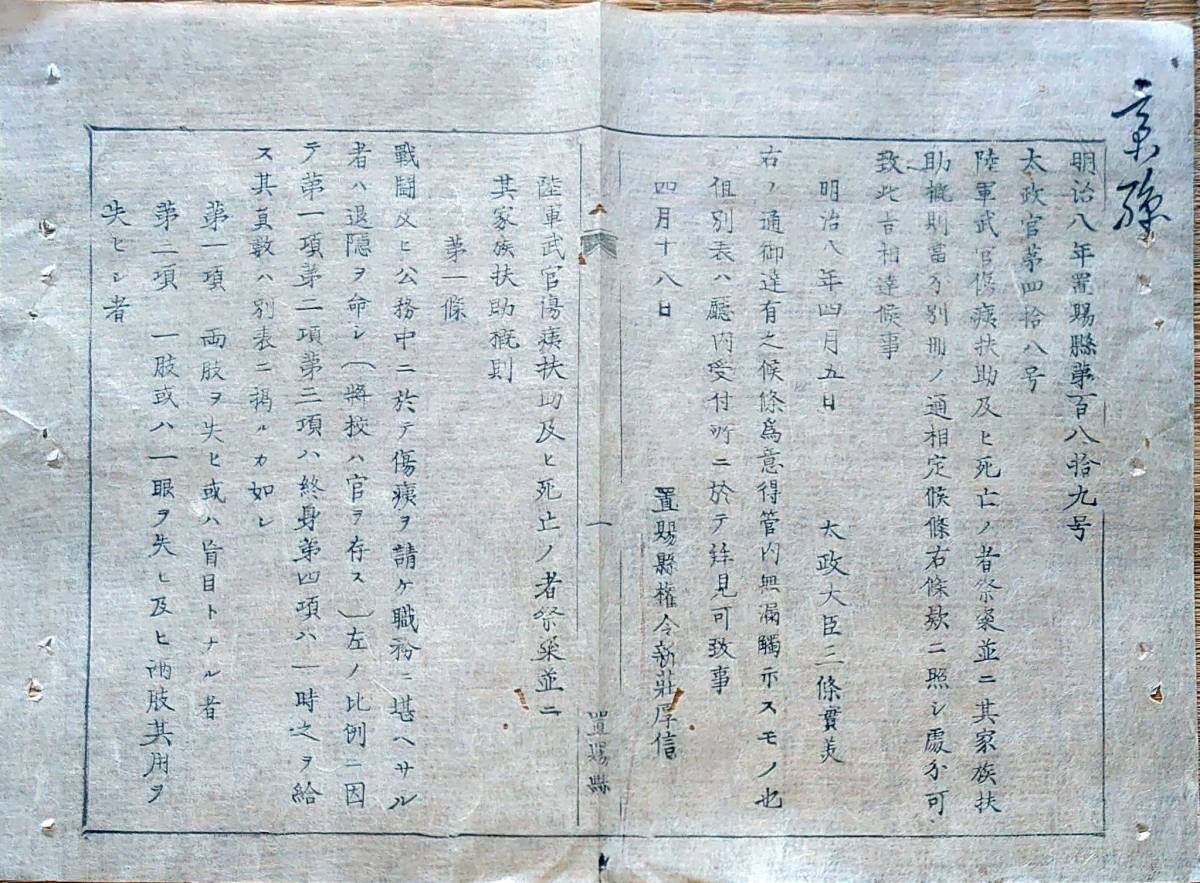 明治八年置賜縣第百八拾九号
太政官第四拾八号
陸軍武官傷痍扶助及ヒ死亡ノ者祭粢並ニ其家族扶
助概則當分別冊ノ通相定候條右條欵ニ照シ處分可
致此旨相達候事
明治八年四月五日 太政大臣三條實美
右ノ通御達有之候條為意得管内無漏觸示スモノ也
但別表ハ廳内受付所ニ於テ詳見可致事
四月十八日 置賜縣權令新莊厚信
一 置賜縣
陸軍武官傷痍扶助及ヒ死亡ノ者祭粢並ニ
其家族扶助概則
第一條
戰鬪及ヒ公務中ニ於テ傷痍ヲ請ケ職務ニ堪ヘサル
者ハ退隠ヲ命シ(將校ハ官ヲ存ス)左ノ比例ニ因
テ第一項第二項第三項ハ終身第四項ハ一時之ヲ給
ス其員數ハ別表ニ掲ルカ如シ
第一項 両肢ヲ失ヒ或ハ盲目トナル者
第二項 一肢或ハ一眼ヲ失ヒ及ヒ両肢其用ヲ
失ヒシ者